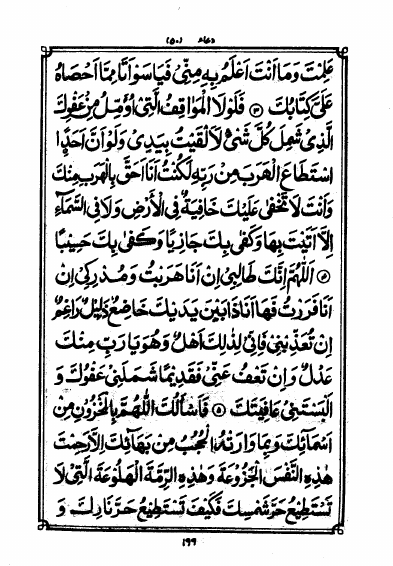 دعاء (۵۰)
عَلِمْتَ وَمَا اَنْتَ اَعْلَمُ بِهِ مِنِّيْ فَيَا سَوْاَتَا مِمَّا اَحْصَاهُ
عَلَيَّ كِتَابُكَ ﴿۳﴾ فَلَوْلَا الْمَوَاقِفُ الَّتِيْ اُؤَمِّلُ مِنْ عَفْوِكَ
الَّذِيْ شَمِلَ كُلَّ شَيْءٍ لَاَلْقَيْتُ بِيَدِيْ وَلَوْ اَنَّ اَحَدًا
اسْتَطَاعَ الْهَرَبَ مِنْ رَبِّهِ لَكُنْتُ اَنَا اَحَقَّ بِالْهَرَبِ مِنْكَ
وَاَنْتَ لَا تَخْفٰى عَلَيْكَ خَافِيَةٌ فِي الْاَرْضِ وَلَا فِي السَّمَآءِ
اِلَّا اَتَيْتَ بِهَا وَكَفٰى بِكَ جَازِيًا وَكَفٰى بِكَ حَسِيْبًا
﴿۵﴾ اَللّٰهُمَّ اِنَّكَ طَالِبِيْ اِنْ اَنَا هَرَبْتُ وَمُدْرِكِيْ اِنْ
اَنَا فَرَرْتُ فَهَا اَنَا ذَا بَيْنَ يَدَيْكَ خَاضِعٌ ذَلِيْلٌ رَاغِمٌ
اِنْ تُعَذِّبْنِيْ فَاِنِّيْ لِذٰلِكَ اَهْلٌ وَهُوَ يَا رَبِّ مِنْكَ
عَدْلٌ وَاِنْ تَعْفُ عَنِّيْ فَقَدِيْمًا شَمَلَنِيْ عَفْوُكَ وَ
اَلْبَسْتَنِيْ عَافِيَتَكَ ﴿۵﴾ فَاَسْأَلُكَ اللّٰهُمَّ بِالْمَخْزُوْنِ مِنْ
اَسْمَائِكَ وَبِمَا وَارَتْهُ الْحُجُبُ مِنْ بَهَائِكَ اِلَّا رَحِمْتَ
هٰذِهِ النَّفْسَ الْجَزُوْعَةَ وَهٰذِهِ الرِّمَّةَ الْهَلُوْعَةَ الَّتِيْ لَا
تَسْتَطِيْعُ حَرَّ شَمْسِكَ فَكَيْفَ تَسْتَطِيْعُ حَرَّ نَارِكَ وَ
۱۹۹